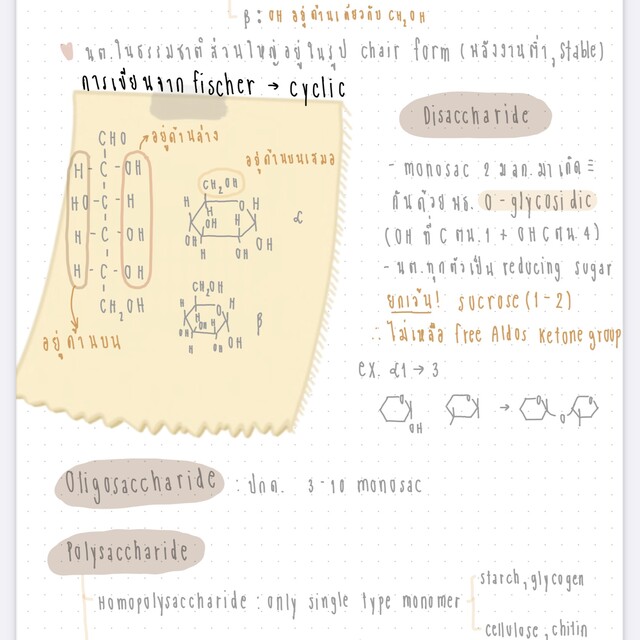 β : OH อยู่ด้านเดียวกับ CH₂OH
นต.ในธรรมชาติส่วนใหญ่อยู่ในรูป chair form (พลังงานต่ำ, stable)
การเขียนจาก fischer → cyclic
CHO
อยู่ด้านล่าง
H - C - OH
HO - C - H
H - C - OH
H - C - OH
CH₂OH
อยู่ด้านบน
อยู่ด้านบนเสมอ
CH₂OH
H
O
H
H
OH
H
OH
OH
H
α
CH₂OH
H
O
H
H
OH
H
OH
OH
H
β
Disaccharide
- monosac 2 มลก.มาเกิด
กันด้วย พธ. O-glycosidic
(OH ที่ C ตน.1 + OH C ตน.4)
- นต.ทุกตัวเป็น reducing sugar
ยกเว้น! sucrose (1-2)
∴ ไม่เหลือ free Aldos ketone group
ex. α1 → 3
O
OH
O
→
O
O
O
Oligosaccharide : ปกต. 3-10 monosac
Polysaccharide
Homopolysaccharide : only single type monomer
starch, glycogen
cellulose, chitin